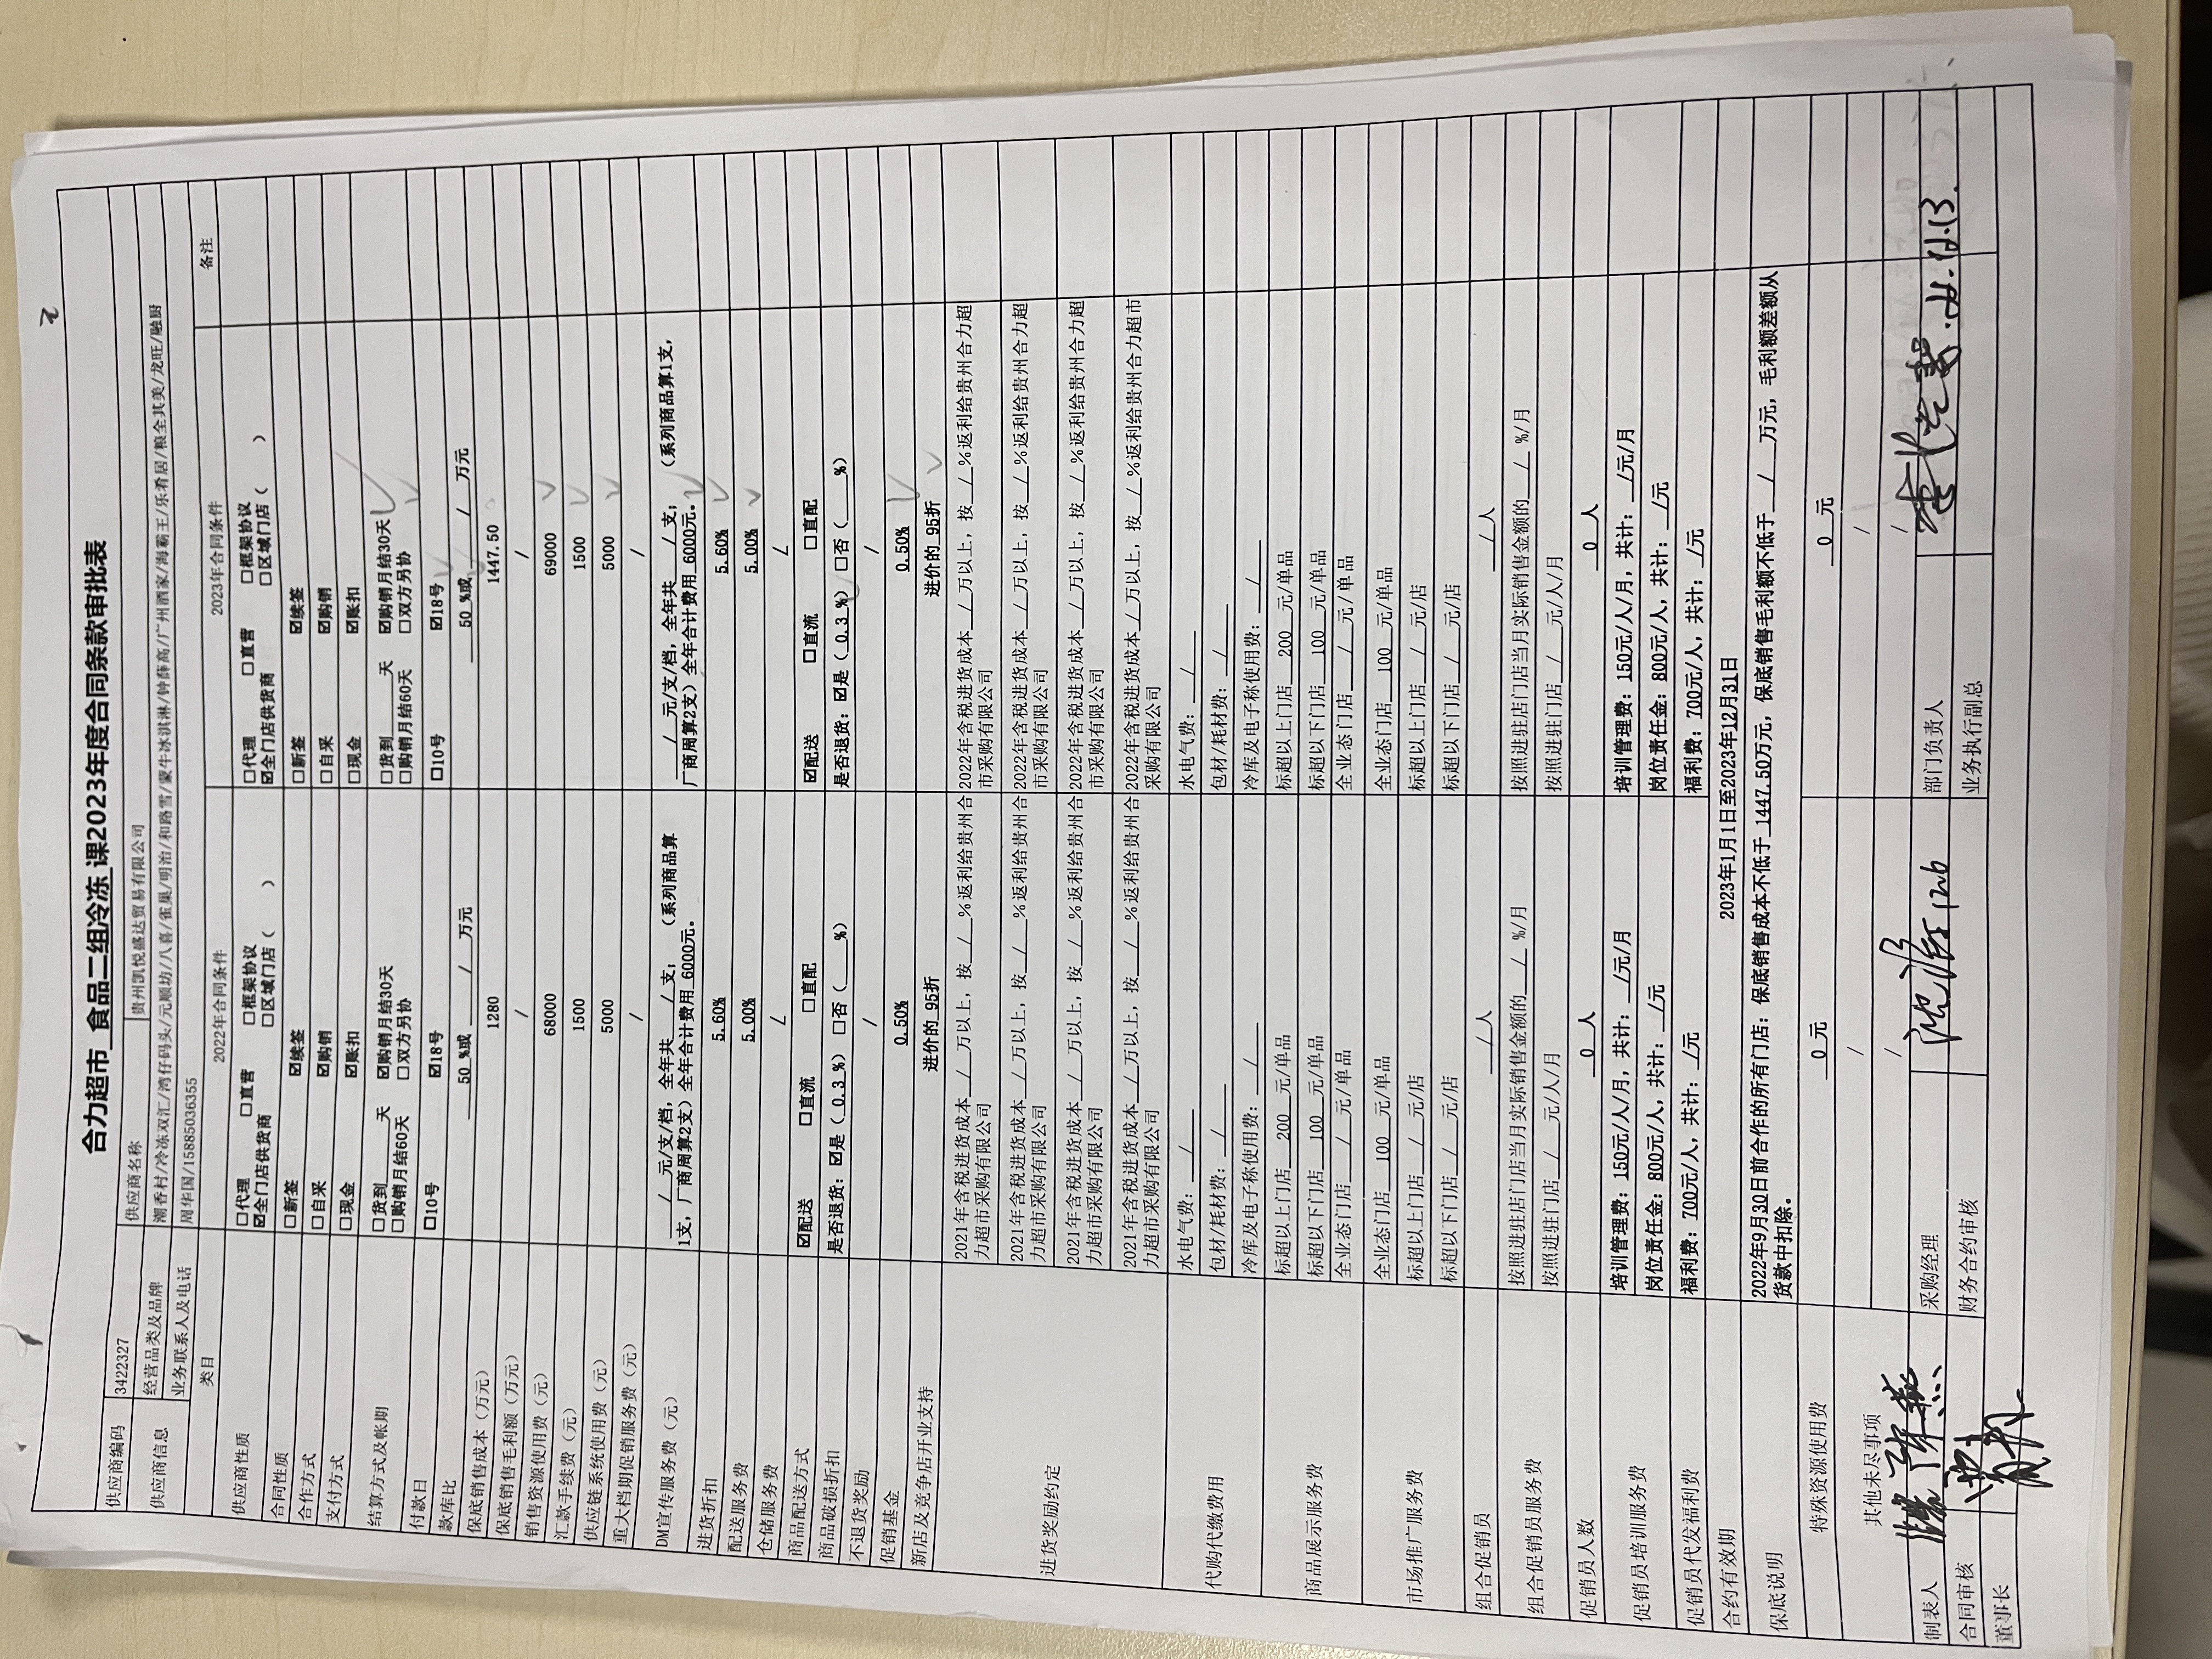 2
合力超市 食品二组冷冻 课2023年度合同条款审批表
供应商编码 3422327 供应商名称 贵州凯悦盛达贸易有限公司
供应商信息 经营品类及品牌 潮香村/冷冻双汇/湾仔码头/元顺坊/八喜/雀巢/明治/和路雪/蒙牛冰淇淋/钟薛高/广州酒家/海霸王/乐肴居/粮全其美/龙旺/融厨
业务联系人及电话 周华国/15885036355
类目 2022年合同条件 2023年合同条件 备注
供应商性质 □代理 □直营 □框架协议 □代理 □直营 □框架协议
☑全门店供货商 □区域门店（ ） ☑全门店供货商 □区域门店（ ）
合同性质 □新签 ☑续签 □新签 ☑续签
合作方式 □自采 ☑购销 □自采 ☑购销
支付方式 □现金 ☑账扣 □现金 ☑账扣
结算方式及帐期 □货到____天 ☑购销月结30天 □货到____天 ☑购销月结30天
□购销月结60天 □双方另协 □购销月结60天 □双方另协
付款日 □10号 ☑18号 □10号 ☑18号
款库比 50 %或 / 万元 50 %或 / 万元
保底销售成本（万元） 1280 1447.50
保底销售毛利额（万元） / /
销售资源使用费（元） 68000 69000
汇款手续费（元） 1500 1500
供应链系统使用费（元） 5000 5000
重大档期促销服务费（元） / /
DM宣传服务费（元） / 元/支/档，全年共 / 支；（系列商品算 / 元/支/档，全年共 / 支；（系列商品算1支，
1支，厂商周算2支）全年合计费用 6000元。 厂商周算2支）全年合计费用 6000元。
进货折扣 5.60% 5.60%
配送服务费 5.00% 5.00%
仓储服务费 / /
商品配送方式 ☑配送 □直流 □直配 ☑配送 □直流 □直配
商品破损折扣 是否退货：☑是（ 0.3 %）□否（ %） 是否退货：☑是（ 0.3 %）□否（ %）
不退货奖励 / /
促销基金 0.50% 0.50%
新店及竞争店开业支持 进价的 95折 进价的 95折
进货奖励约定 2021年含税进货成本 / 万以上，按 / %返利给贵州合 2022年含税进货成本 / 万以上，按 / %返利给贵州合力超
力超市采购有限公司 市采购有限公司
2021年含税进货成本 / 万以上，按 / %返利给贵州合 2022年含税进货成本 / 万以上，按 / %返利给贵州合力超
力超市采购有限公司 市采购有限公司
2021年含税进货成本 / 万以上，按 / %返利给贵州合 2022年含税进货成本 / 万以上，按 / %返利给贵州合力超
力超市采购有限公司 市采购有限公司
2021年含税进货成本 / 万以上，按 / %返利给贵州合 2022年含税进货成本 / 万以上，按 / %返利给贵州合力超市
力超市采购有限公司 采购有限公司
代购代缴费用 水电气费： / 水电气费： /
包材/耗材费： / 包材/耗材费： /
冷库及电子称使用费： / 冷库及电子称使用费： /
商品展示服务费 标超以上门店 200 元/单品 标超以上门店 200 元/单品
标超以下门店 100 元/单品 标超以下门店 100 元/单品
全业态门店 / 元/单品 全业态门店 / 元/单品
市场推广服务费 全业态门店 100 元/单品 全业态门店 100 元/单品
标超以上门店 / 元/店 标超以上门店 / 元/店
标超以下门店 / 元/店 标超以下门店 / 元/店
组合促销员 /人 /人
组合促销员服务费 按照进驻店门店当月实际销售金额的 / %/月 按照进驻店门店当月实际销售金额的 / %/月
按照进驻门店 / 元/人/月 按照进驻门店 / 元/人/月
促销员人数 0 人 0 人
促销员培训服务费 培训管理费：150元/人/月，共计：/元/月 培训管理费：150元/人/月，共计：/元/月
岗位责任金：800元/人，共计：/元 岗位责任金：800元/人，共计：/元
促销员代发福利费 福利费：700元/人，共计：/元 福利费：700元/人，共计：/元
合约有效期 2023年1月1日至2023年12月31日
保底说明 2022年9月30日前合作的所有门店：保底销售成本不低于 1447.50万元，保底销售毛利额不低于 / 万元，毛利额差额从
货款中扣除。
特殊资源使用费 0 元 0 元
其他未尽事项 / /
/ /
制表人 采购经理 部门负责人
合同审核 财务合约审核 业务执行副总
董事长